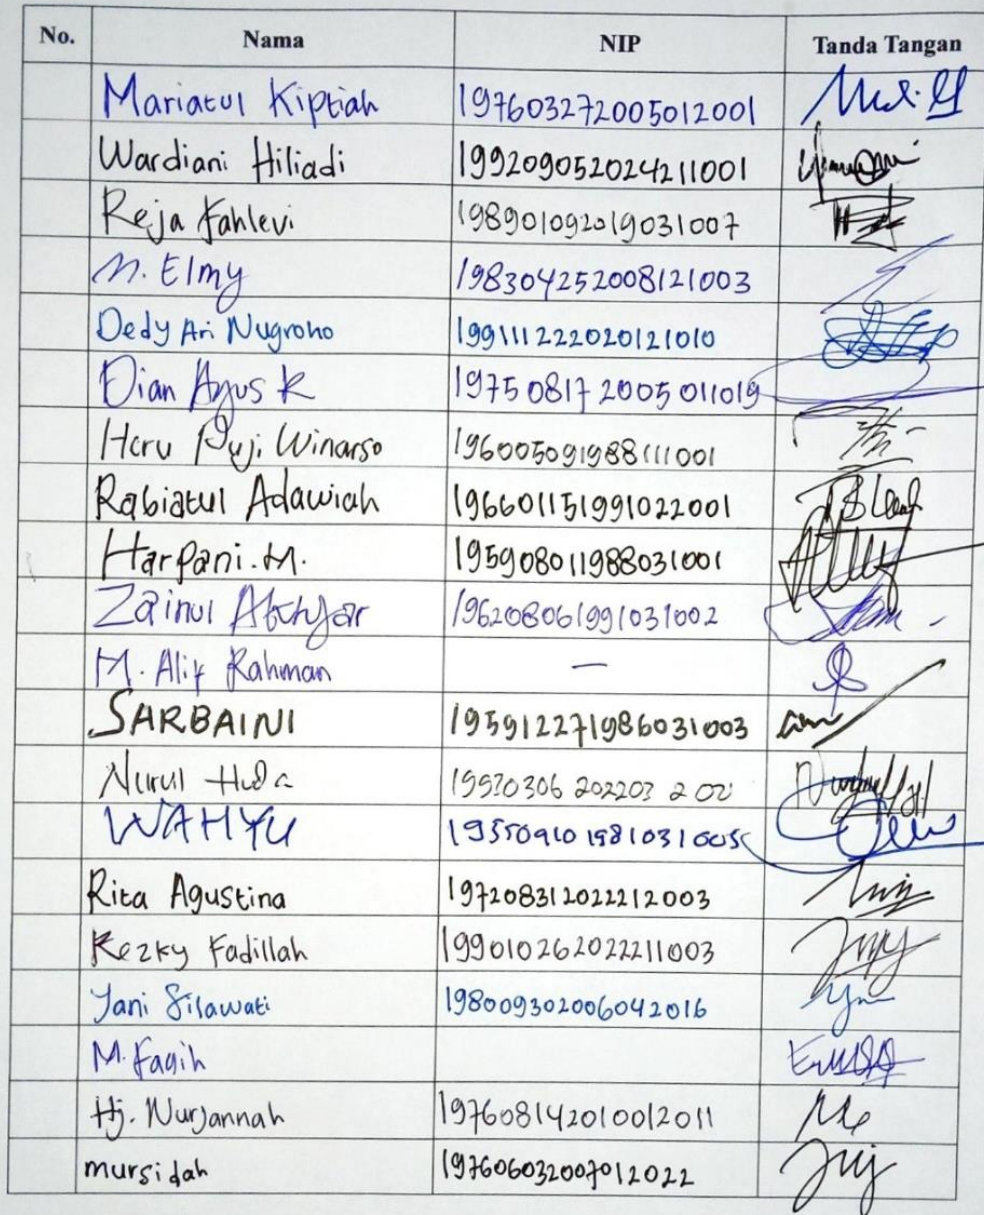 No. Nama NIP Tanda Tangan
Mariatul Kiptiah 197603272005012001
Wardiani Hiliadi 199209052024211001
Reja Fahlevi 198901092019031007
M. Elmy 198304252008121003
Dedy Ari Nugroho 199111222020121010
Dian Agus R 19750817 2005 011019
Heru Puji Winarso 196005091988111001
Rabiatul Adawiah 196601151991022001
Harpani. M. 195908011988031001
Zainul Akhyar 196208061991031002
M. Alif Rahman —
SARBAINI 195912271986031003
Nurul Huda
WAHYU
Rita Agustina 197208312022212003
Rezky Fadillah 199010262022211003
Yani Silawati 198009302006042016
M. Faqih
Hj. Nurjannah 197608142010012011
mursidah 197606032007012022